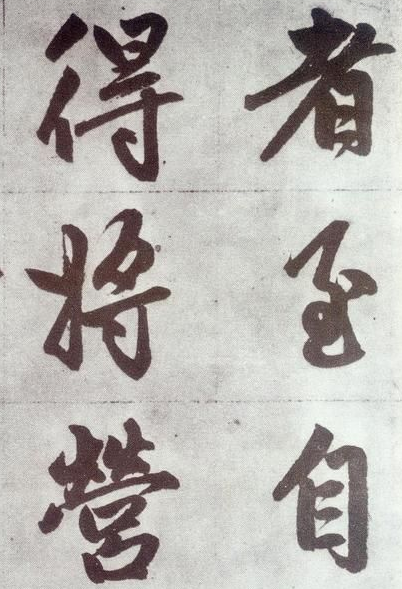 者至自
得將營